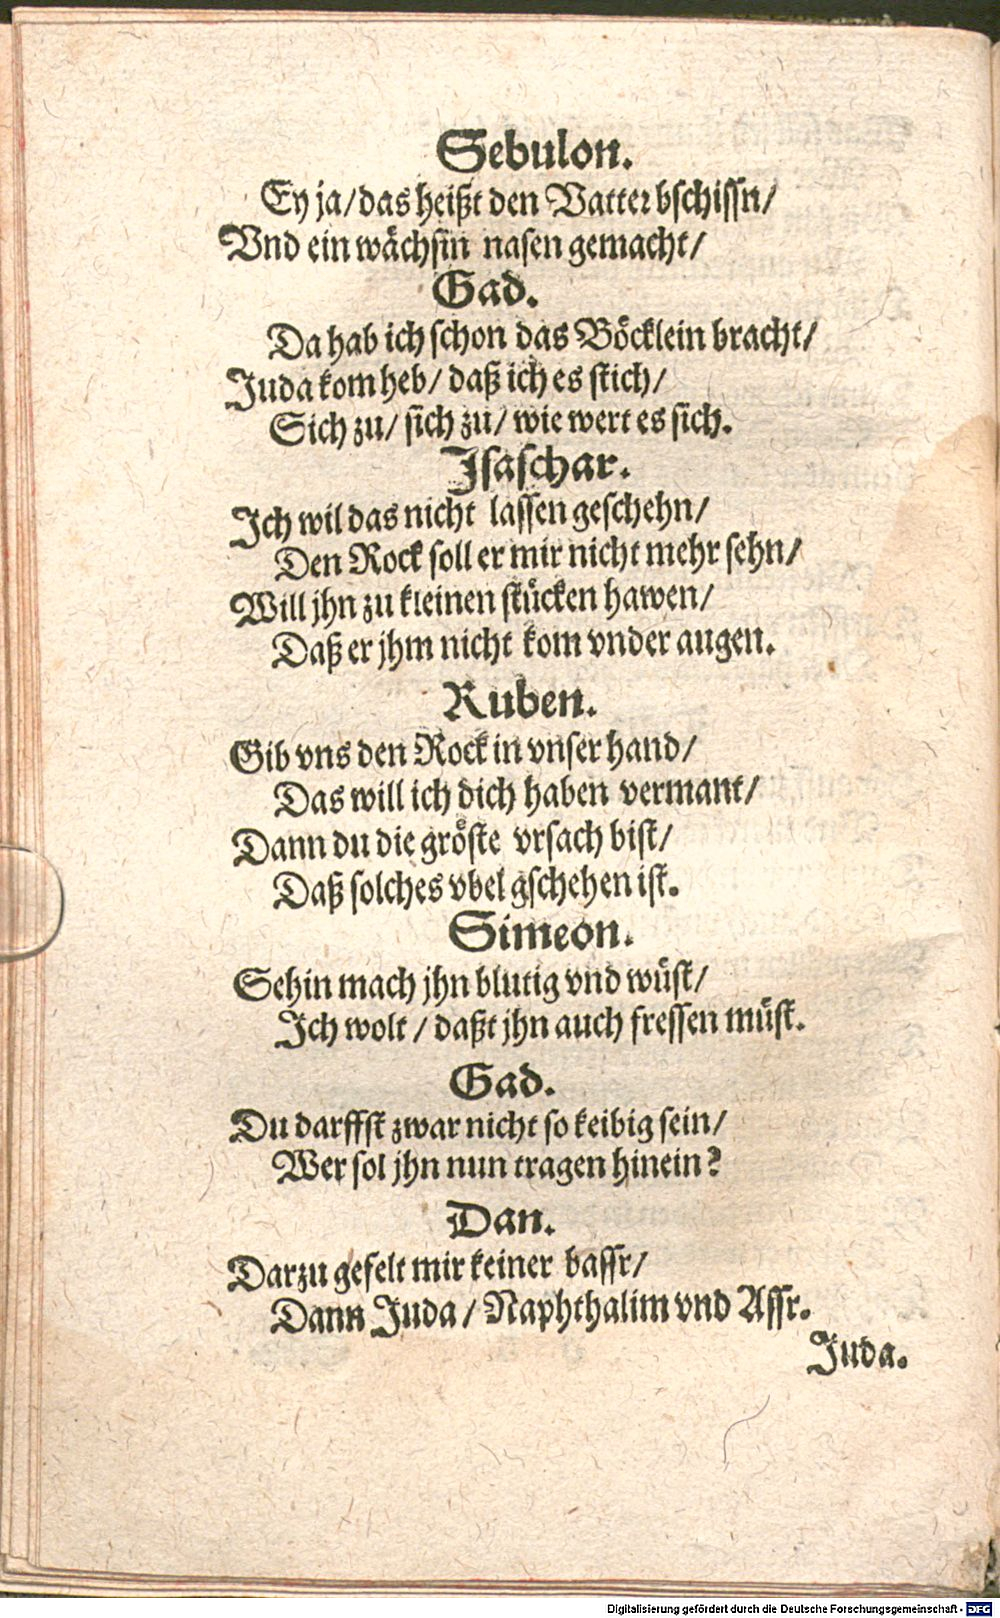 Sebulon.
Ey ja/das heißt den Vatter bschissn/
Vnd ein wächsin nasen gemacht/
Gad.
Da hab ich schon das Böcklein bracht/
Juda kom heb/ daß ich es stich/
Sich zu/ sich zu/ wie wert es sich.
Isaschar.
Ich wil das nicht lassen geschehn/
Den Rock soll er mir nicht mehr sehn/
Will jhn zu kleinen stücken hawen/
Daß er jhm nicht kom vnder augen.
Ruben.
Gib vns den Rock in vnser hand/
Das will ich dich haben vermant/
Dann du die gröste vrsach bist/
Daß solches vbel gschehen ist.
Simeon.
Sehin mach jhn blutig vnd wüst/
Ich wolt / daßt jhn auch fressen müst.
Gad.
Du darffst zwar nicht so keibig sein/
Wer sol jhn nun tragen hinein?
Dan.
Darzu gefelt mir keiner bassr/
Dann Juda / Naphthalim vnd Assr.
Juda.
Digitalisierung gefördert durch die Deutsche Forschungsgemeinschaft - DFG